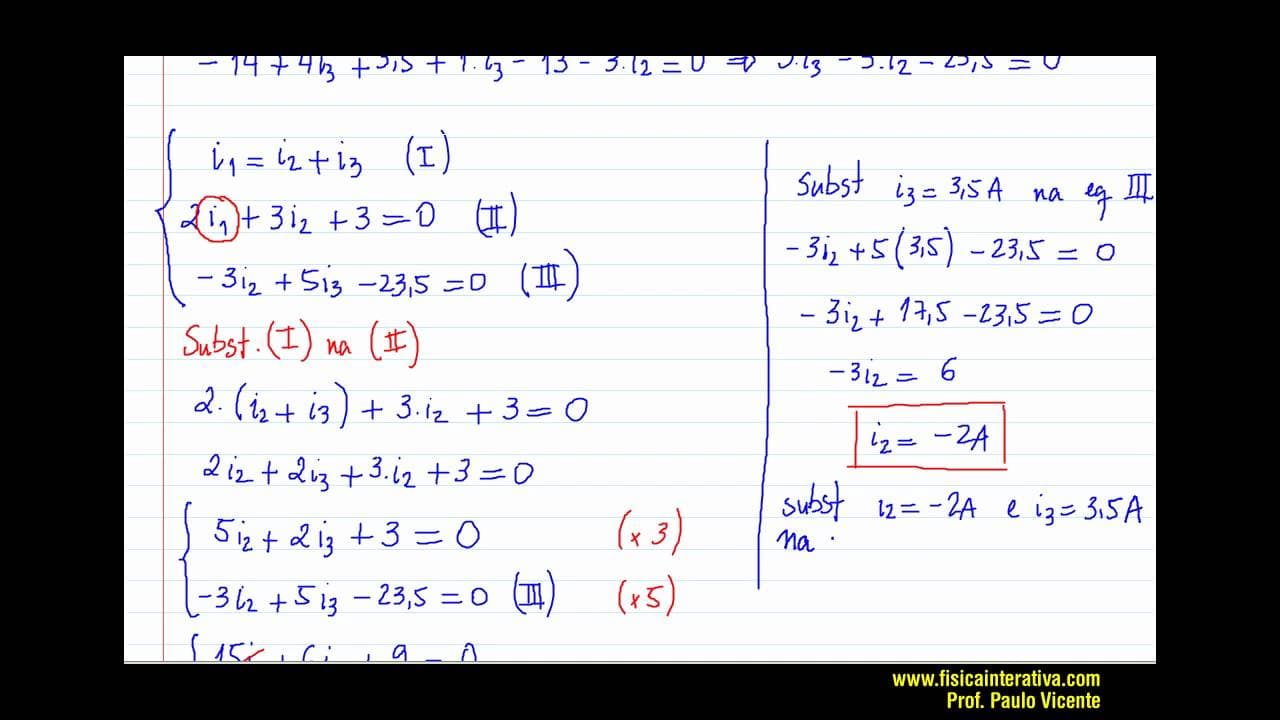 -14 + 4i3 + 3,5 + 1.i3 - 13 - 3.i2 = 0 ⇒ 5.i3 - 3.i2 - 23,5 = 0
i1 = i2 + i3 (I)
2i1 + 3i2 + 3 = 0 (II)
-3i2 + 5i3 - 23,5 = 0 (III)
Subst. (I) na (II)
2.(i2 + i3) + 3.i2 + 3 = 0
2i2 + 2i3 + 3.i2 + 3 = 0
5i2 + 2i3 + 3 = 0 (x 3)
-3i2 + 5i3 - 23,5 = 0 (III) (x 5)
Subst i3 = 3,5A na eq III
-3i2 + 5(3,5) - 23,5 = 0
-3i2 + 17,5 - 23,5 = 0
-3i2 = 6
i2 = -2A
subst i2 = -2A e i3 = 3,5A
na
www.fisicainterativa.com
Prof. Paulo Vicente